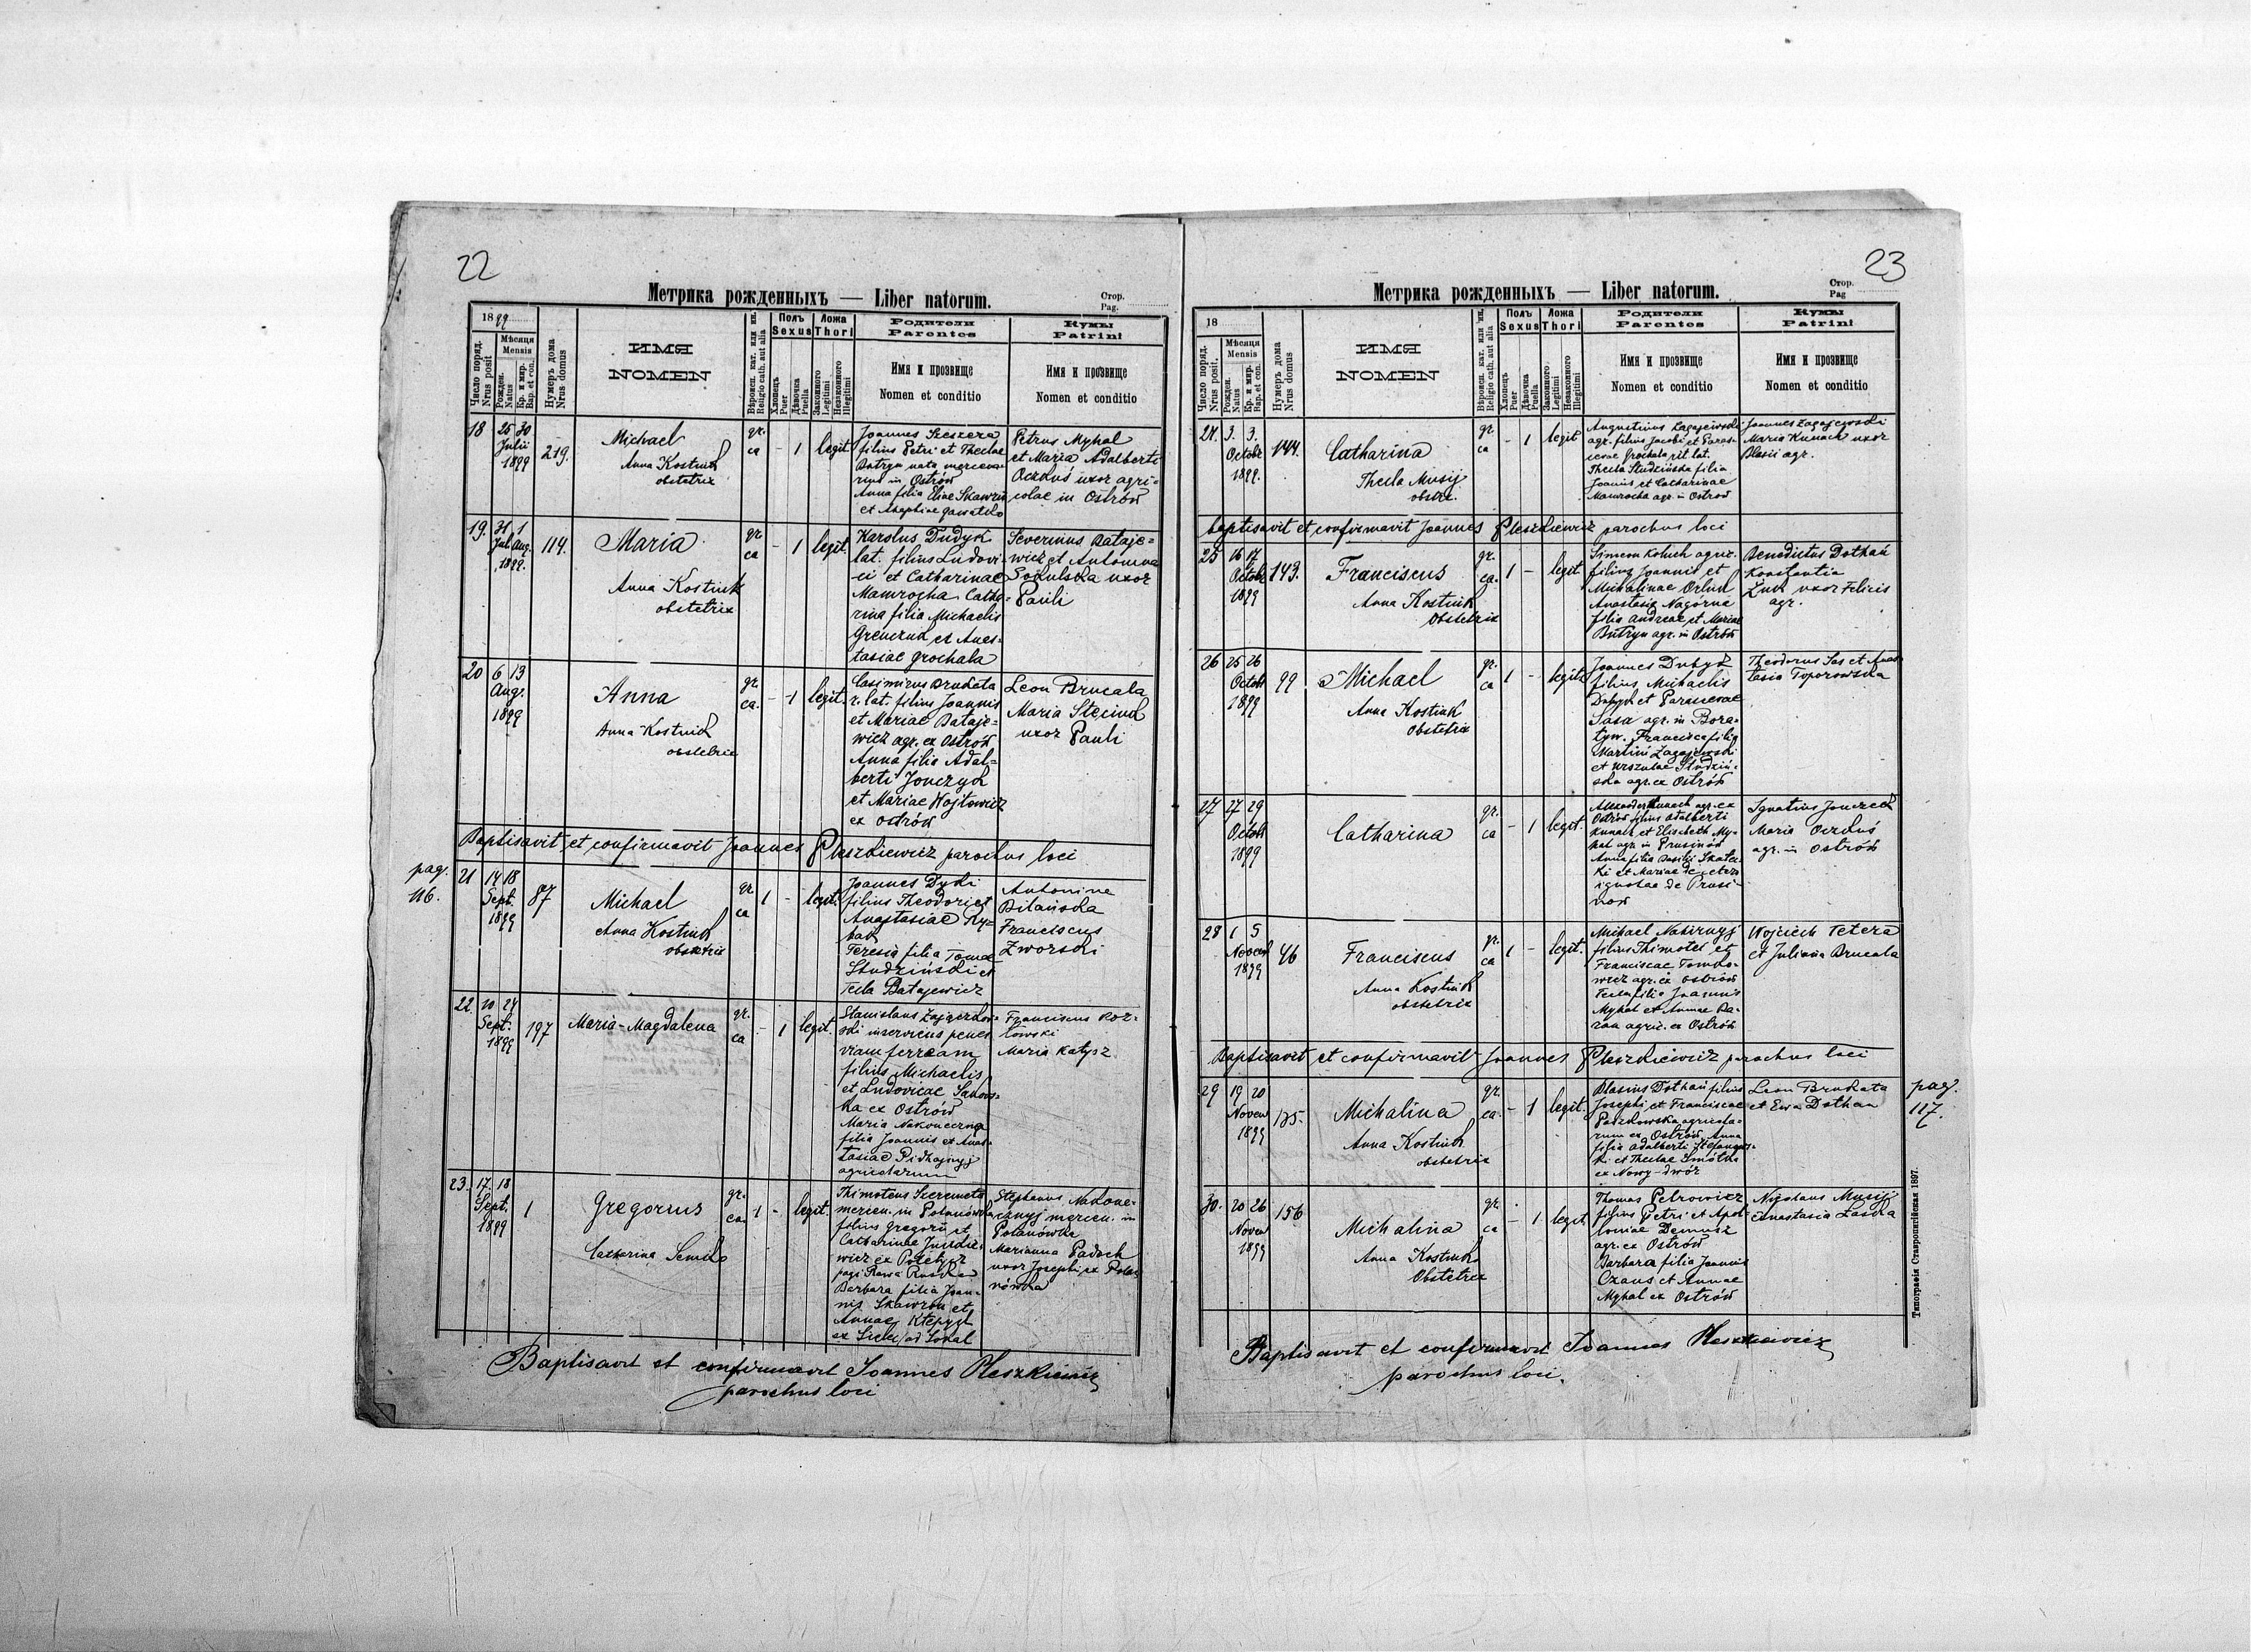 22
Метрика рожденныхъ — Liber natorum.
Стор.
Pag.
1899
Число поряд.
Nrus posit
Мѣсяця
Mensis
Рожден.
Natus
Кр. и мир.
Bap. et con.
Нумеръ дома
Nrus domus
ИМЯ
NOMEN
Вѣроисп. кат. или ин.
Religio cath. aut alia
Полъ
Sexus
Хлопець
Puer
Дѣвочка
Puella
Ложа
Thori
Законного
Legitimi
Незаконного
Illegitimi
Родители
Parentes
Имя и прозвище
Nomen et conditio
Кумы
Patrini
Имя и прозвище
Nomen et conditio
18
25 30
Julii
1899
219.
Michael
Anna Kostiuk
obstetrix
gr.
ca
- 1
legit.
Joannes Szeszera
filius Petri et Theclae
Butryn nata mercena-
rius in Ostrów
Anna filia Eliae Skawron
et
Petrus Myhal
et Maria Adalberti
Oczkuś uxor agri-
colae in Ostrów
19.
31 1
Jul. Aug.
1899.
114.
Maria
Anna Kostiuk
obstetrix
gr.
ca
- 1
legit.
Karolus Dudyk
lat. filius Ludovi-
ci et Catharinae
Mamrocha Catha-
rina filia Michaelis
Hrenczuk et Anes-
tasiae Grochala
Severinus Bataje-
wicz et Antonina
Sokulska uxor
Pauli
20
6 13
Aug.
1899
Anna
Anna Kostiuk
obstetrix
gr.
ca.
- 1
legit.
Casimirus Brukata
r. lat. filius Joannis
et Mariae Bataje-
wicz agr. ex Ostrów
Anna filia Adal-
berti Jonczyk
et Mariae Wojtowicz
ex Ostrów
Leon Brucala
Maria Steciuk
uxor Pauli
Baptisavit et confirmavit Joannes Pleszkiewicz parochus loci
pag.
116.
21
14 18
Sept.
1899
87
Michael
Anna Kostiuk
obstetrix
gr.
ca
1 -
legit.
Joannes Dyki
filius Theodori et
Anastasiae Ry-
bak
Teresia filia Tomae
Studziński et
Tecla Batajewicz
Antonina
Bilańska
Franciscus
Zworski
22.
20 24
Sept.
1899
197
Maria-Magdalena
gr.
ca
- 1
legit.
Stanislaus Zajączkow-
ski inserviens penes
viam ferream
filius Michaelis
et Ludovicae Sakow-
ska ex Ostrów
Maria Nakoneczna
filia Joannis et Anas-
tasiae Pidhajnyj
agricolarum
Franciscus Koz-
łowski
Maria Katysz
23.
17. 18
Sept.
1899
1
Gregorius
Catharina Semik
gr.
ca.
1 -
legit.
Thimoteus Szeremeta
mercen. in Potanówka
filius Gregorii et
Catharinae
wicz ex Potelycz
pagi Rawa Ruska
Barbara filia Joan-
nis Skawron et
Annae Kłepyk
ex Sielec ad Sokal
Stephanus Nakone-
cznyj mercen. in
Potanówka
Marianna Padoch
uxor Josephi ex Pota-
nówka
Baptisavit et confirmavit Joannes Pleszkiewicz
parochus loci
23
Метрика рожденныхъ — Liber natorum.
Стор.
Pag
18
Число поряд.
Nrus posit.
Мѣсяця
Mensis
Рожден.
Natus
Кр. и мир.
Bap. et con.
Нумеръ дома
Nrus domus
ИМЯ
NOMEN
Вѣроисп. кат. или ин.
Religio cath. aut alia
Полъ
Sexus
Хлопець
Puer
Дѣвочка
Puella
Ложа
Thori
Законного
Legitimi
Незаконного
Illegitimi
Родители
Parentes
Имя и прозвище
Nomen et conditio
Кумы
Patrini
Имя и прозвище
Nomen et conditio
24.
3. 3.
Octobr
1899.
144.
Catharina
Thecla Musij
obstr.
gr
ca
- 1
legit
Augustinus Zagajewski
agr. filius Jacobi et Paras-
cevae Grochala rit. lat.
Thecla Studzińska filia
Joannis et Catharinae
Mamrocha agr. in Ostrów
Joannes Zagajewski
Maria Kunach uxor
Blasii agr.
baptisavit et confirmavit Joannes Pleszkiewicz parochus loci
25
16 17
Octobr
1899
143.
Franciscus
Anna Kostiuk
Obstetrix
gr.
ca.
1 -
legit.
Simeon Kohich agric.
filius Joannis et
Michalinae Orluk
Anastasia Nagórna
filia Andreae et Mariae
Butryn agr. in Ostrów
Benedictus Dothań
Konstantia
Żuk uxor Felicis
agr.
26
25 26
Octobr
1899
99
Michael
Anna Kostiuk
Obstetrix
gr.
ca
1 -
legit.
Joannes Dubyk
filius Michaelis
Dubyk et Parascevae
Sasa agr. in Bora-
tyn. Francisca filia
Martini Zagajewski
et Urszulae Studziń-
ska agr. ex Ostrów
Theodorus Sas et Anas-
tasia Toporowska
27
27 29
Octobr
1899
Catharina
gr.
ca
- 1
legit.
Alexander Kunach agr. ex
Ostrów filius Adalberti
Kunach et Elisabeth My-
hal agr. in Prusinów
Anna filia Basilii Skates-
ki et Mariae de
ignotae de Prusi-
now
Ignatius Jonczek
Maria Oczkuś
agr. in Ostrów
28
1 5
Novem
1899
46
Franciscus
Anna Kostiuk
obstetrix
gr.
ca
1 -
legit.
Michael Nahirnyj
filius Thimotei et
Franciscae Tomko-
wicz agr. ex Ostrów
Tecla filia Joannis
Myhal et Annae Ba-
ran agric. ex Ostrów
Wojciech Tetera
et Juliana Brucala
Baptisavit et confirmavit Joannes Pleszkiewicz parochus loci
29
19 20
Novem
1899
125.
Michalina
Anna Kostiuk
obstetrix
gr.
ca.
- 1
legit.
Blasius Dothań filius
Josephi et Franciscae
Paczkowska agricola-
rum ex Ostrów, Anna
filia Adalberti Stefanows-
ki et Theclae Smótka
ex Nowy-dwór
Leon Brukata
et Ewa Dothan
pag.
117.
30.
20 26
Novem
1899
156
Michalina
Anna Kostiuk
Obstetrix
gr.
ca
- 1
legit.
Thomas Petrowicz
filius Petri et Apol-
loniae Demusz
agr. ex Ostrów
Barbara filia Joannis
Czaus et Annae
Myhal ex Ostrów
Nicolaus Musij
Anastasia Łaska
Baptisavit et confirmavit Joannes Pleszkiewicz
parochus loci.
Типографія Ставропигійская 1897.